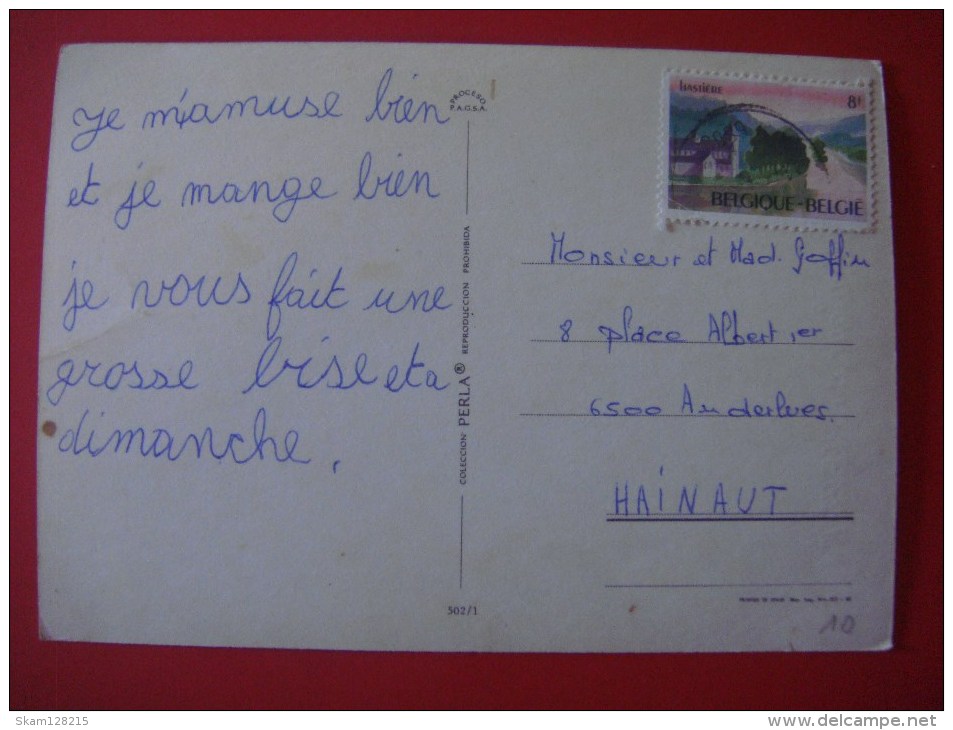 je m'amuse bien
et je mange bien
je vous fait une
grosse bise et a
dimanche.
PROGESO
P.A.G.S.A.
COLECCION PERLA® REPRODUCCION PROHIBIDA
502/1
HASTIÈRE
8F
BELGIQUE-BELGIË
Monsieur et Mad. Goffin
8 place Albert 1er
6500 Anderlues.
HAINAUT
10
Skam128215
www.delcampe.net